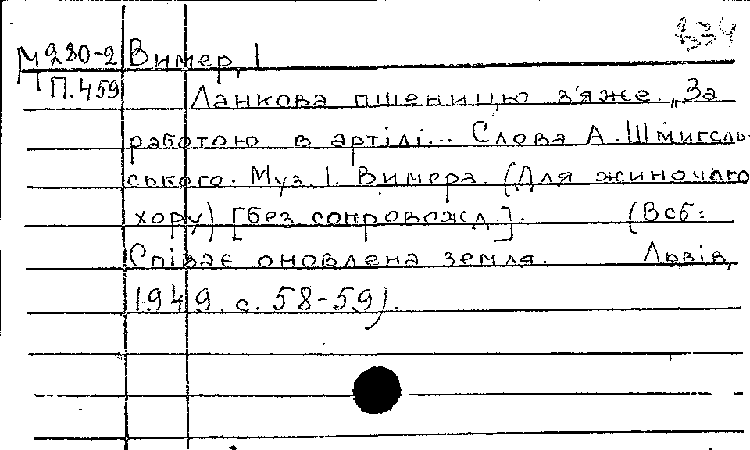 334
М 280-2 Вимер, І
П.459
Ланкова пшеницю в'яже. „За
работою в артілі... Слова А. Шмигель-
ського. Муз. І. Вимера. (Для жиночого
хору) [без сопровожд.]. (В сб:
Співає оновлена земля. Львів,
1949. с. 58-59).